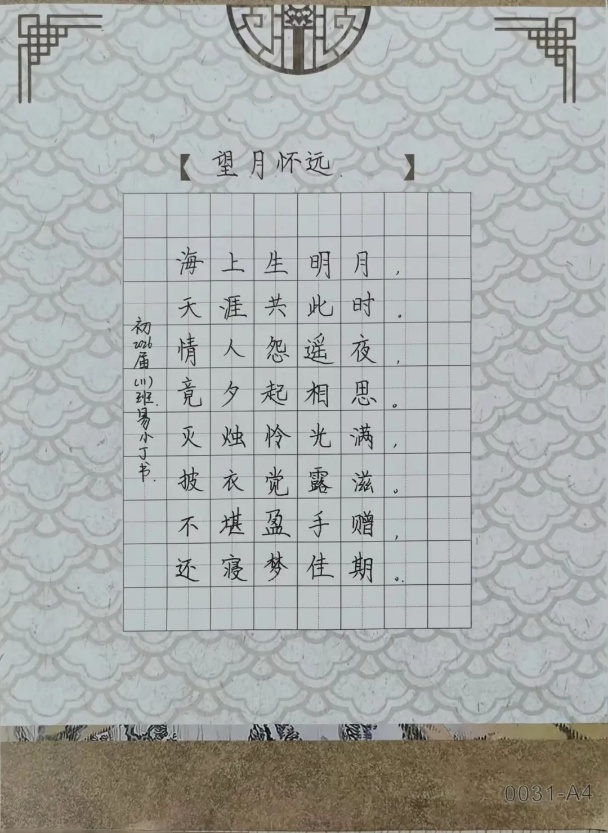 【望月怀远】
海上生明月，
天涯共此时。
情人怨遥夜，
竟夕起相思。
灭烛怜光满，
披衣觉露滋。
不堪盈手赠，
还寝梦佳期。
初2026届(11)班易小丁书.
0031-A4